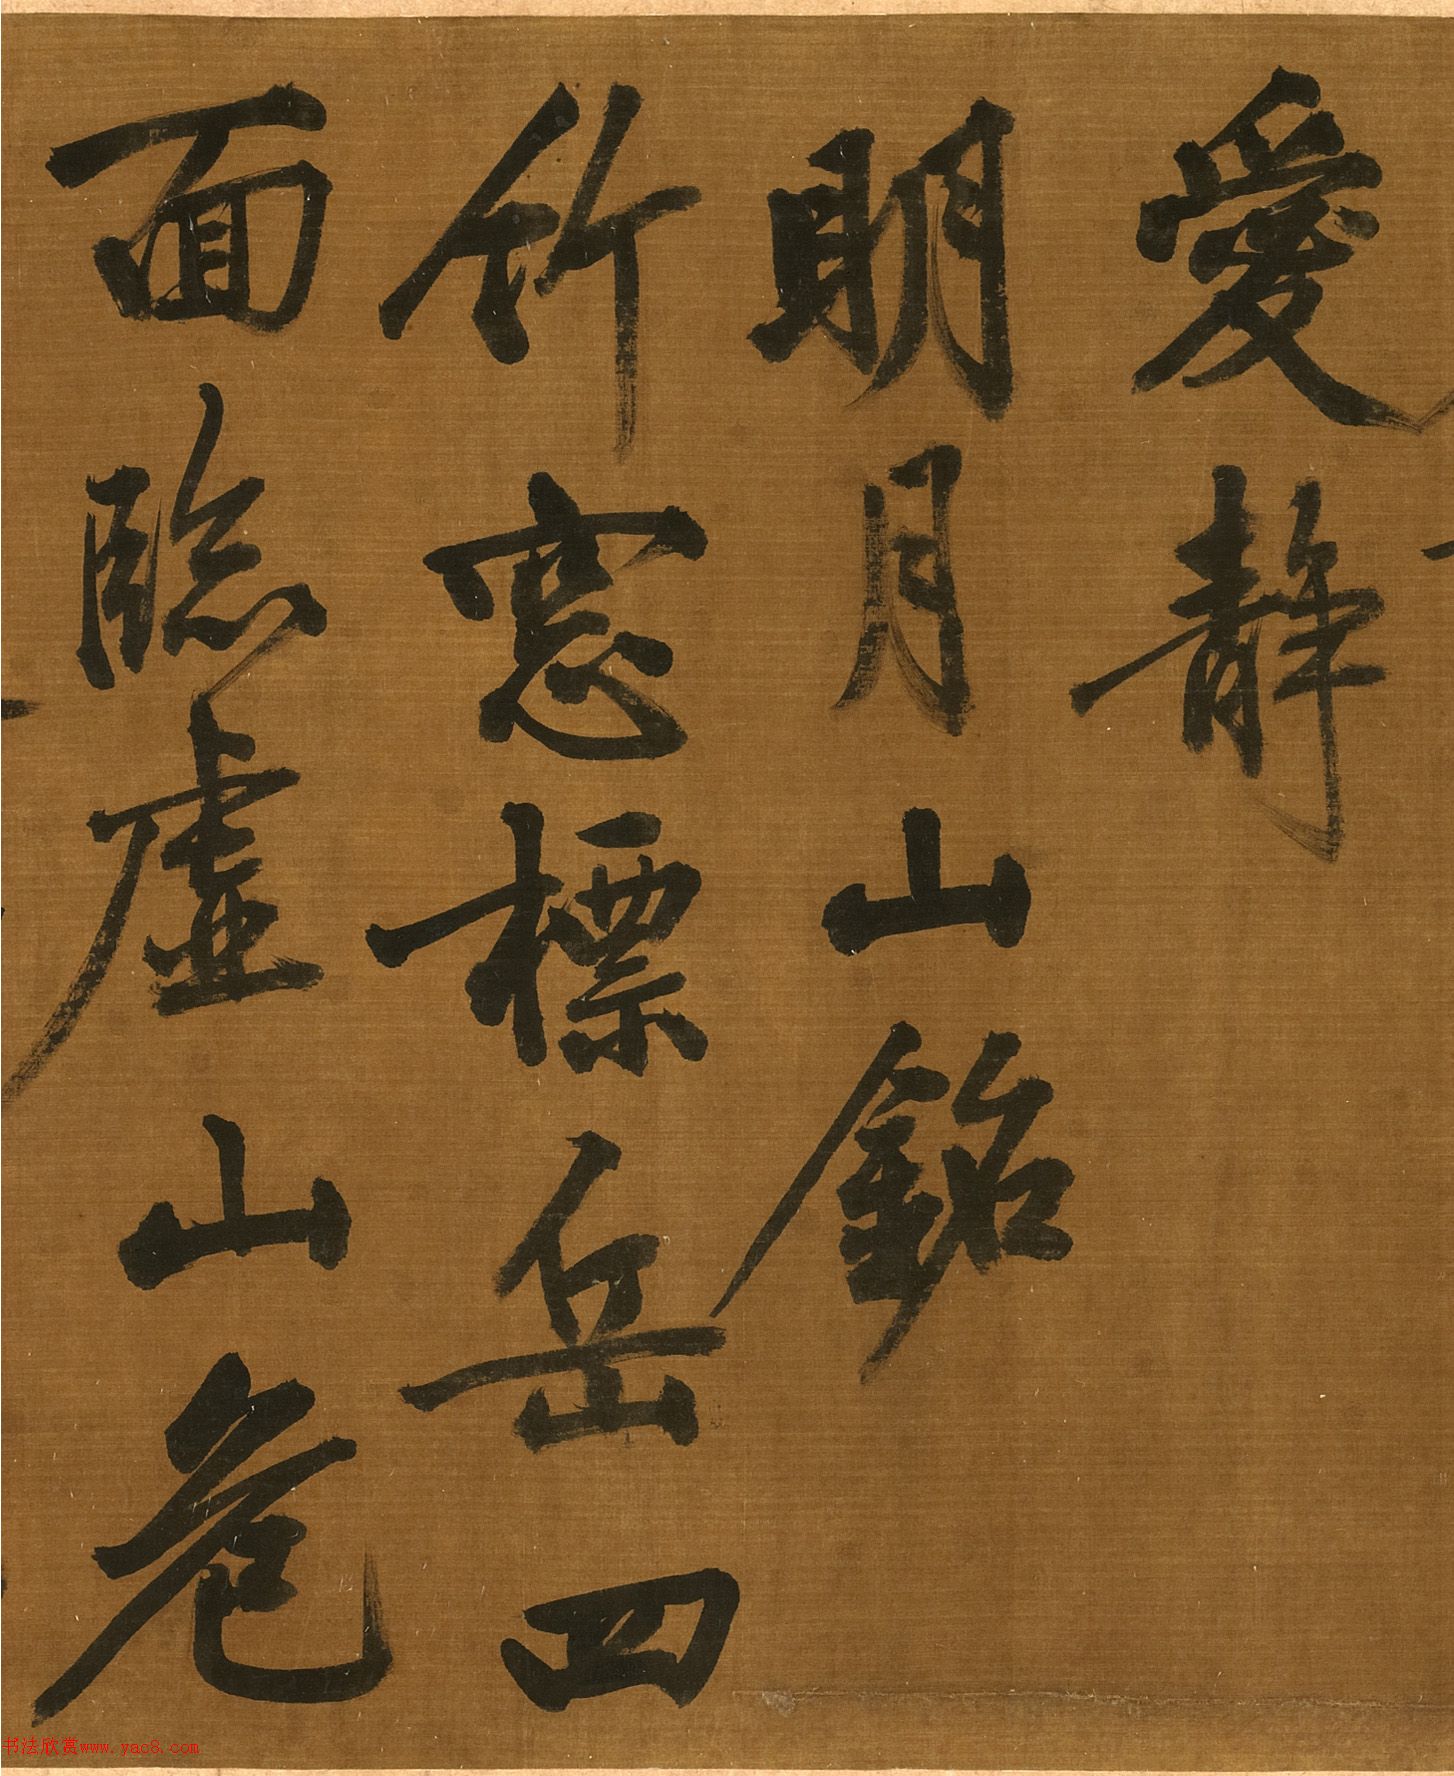 愛靜
明月山銘
竹窓標岳四
面臨虛山危
书法欣赏www.yac8.com